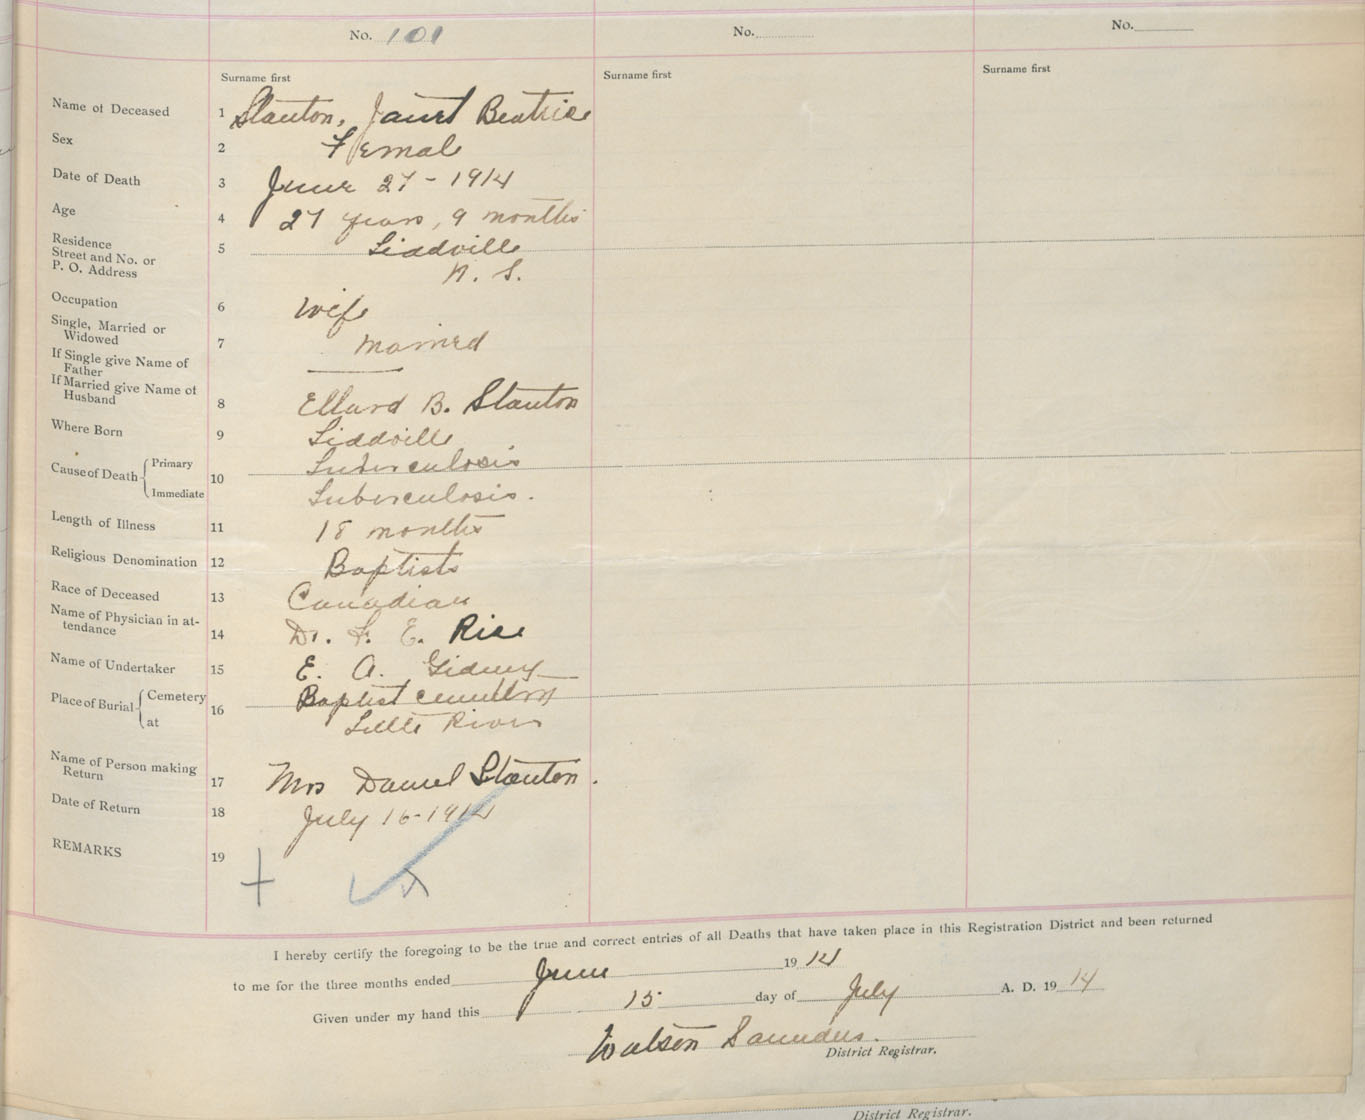 No. 101 No. No.
Surname first Surname first Surname first
Name of Deceased 1 Stanton, Janet Beatrice
Sex 2 Female
Date of Death 3 June 27 - 1914
Age 4 27 years, 9 months
Residence
Street and No. or
P. O. Address 5 Tiddville
N. S.
Occupation 6 Wife
Single, Married or
Widowed 7 Married
If Single give Name of
Father
If Married give Name of
Husband 8 Ellard B. Stanton
Where Born 9 Tiddville
Cause of Death Primary 10 Tuberculosis
Immediate Tuberculosis.
Length of Illness 11 18 months
Religious Denomination 12 Baptists
Race of Deceased 13 Canadian
Name of Physician in at-
tendance 14 Dr. F. E. Rice
Name of Undertaker 15 E. A. Gidney
Place of Burial Cemetery 16 Baptist Cemetery
at Little River
Name of Person making
Return 17 Mrs Daniel Stanton.
Date of Return 18 July 16-1914
REMARKS 19
I hereby certify the foregoing to be the true and correct entries of all Deaths that have taken place in this Registration District and been returned
to me for the three months ended June 1914
Given under my hand this 15 day of July A. D. 1914
Watson Saunders.
District Registrar.
District Registrar.